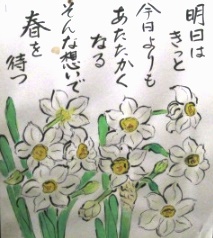 明日は
きっと
今日よりも
あたたかく
なる
そんな想いで
春を
待つ